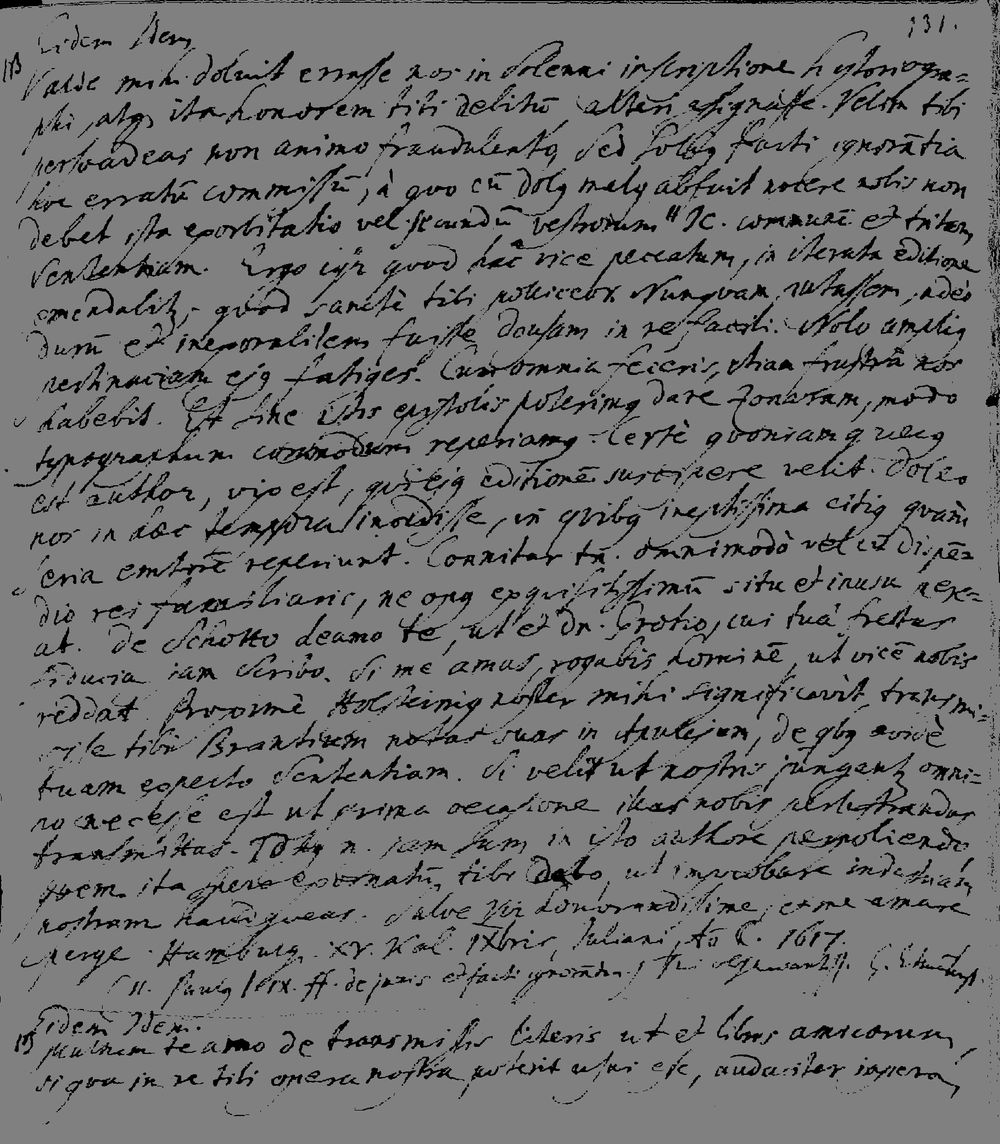 131.
Eidem Idem
Valde mihi doluit errasse nos in solenni inscriptione hystoriogra=
phi, atq ita honorem tibi debitū alteri assignasse. Velim tibi
persuadeas non animo fraudulento, sed sol facti ignorātia
hoc erratū commissū, à quo cū dol mal abfuit nocere nobis non
debet ista exorbitatio vel secundū vestrorum IC. communē et tritam
sententiam. Ergo quod hac vice peccatum, in iterata editione
emendabit, quod sanctè tibi polliceor. Nunquam putassem adeo
durū et inexorabilem fuisse Dousam in re facili. Nolo amplig
pertinaciam ejg fatiges. Cum omnia feceris, etiam frustrà nos
habebit. Et sine istis epistolis poterimg dare Zonaram, modo
typographum commodum reperiamg. Certè quoniam graecg
est author, vix est, qui ejg editionē suscipere velit. Doleo
nos in haec tempora incidisse, in quibg ineptissima citig quàm
seria emtorē reperiunt. Connitar tn. omnimodò vel cū dispē=
dio rei familiaris, ne opg exquisitissimū situ et inusu pere=
at. De Schotto deamo te, ut et Dn. Grotio, cui tuâ fretus
fiducia iam scribo. Si me amas, rogabis hominē, ut vicē nobis
reddat. Proximè Holsteinig noster mihi significavit, transmi=
sisse tibi Brantium notas suas in Apulejum, de qbg avidè
tuam expecto sententiam. Si velit ut nostris jungant, omni=
no necesse est ut prima occasione illas nobis perlustrandas
transmittas. n. iam sum in isto authore perpoliendo
quem ita spero exornatū tibi dabo, ut improbare industriam
nostram haud queas. Salve Vir honorandissime, et me amare
perge. Hamburg. XV. Kal. IXbris, Juliani, Ao C. 1617.
ff. de juris et facti ignorātia
Eidem Idem.
Multum te amo de transmissis literis ut et libris amicorum,
si qua in re tibi opera nostra poterit usui esse, audacter impera,